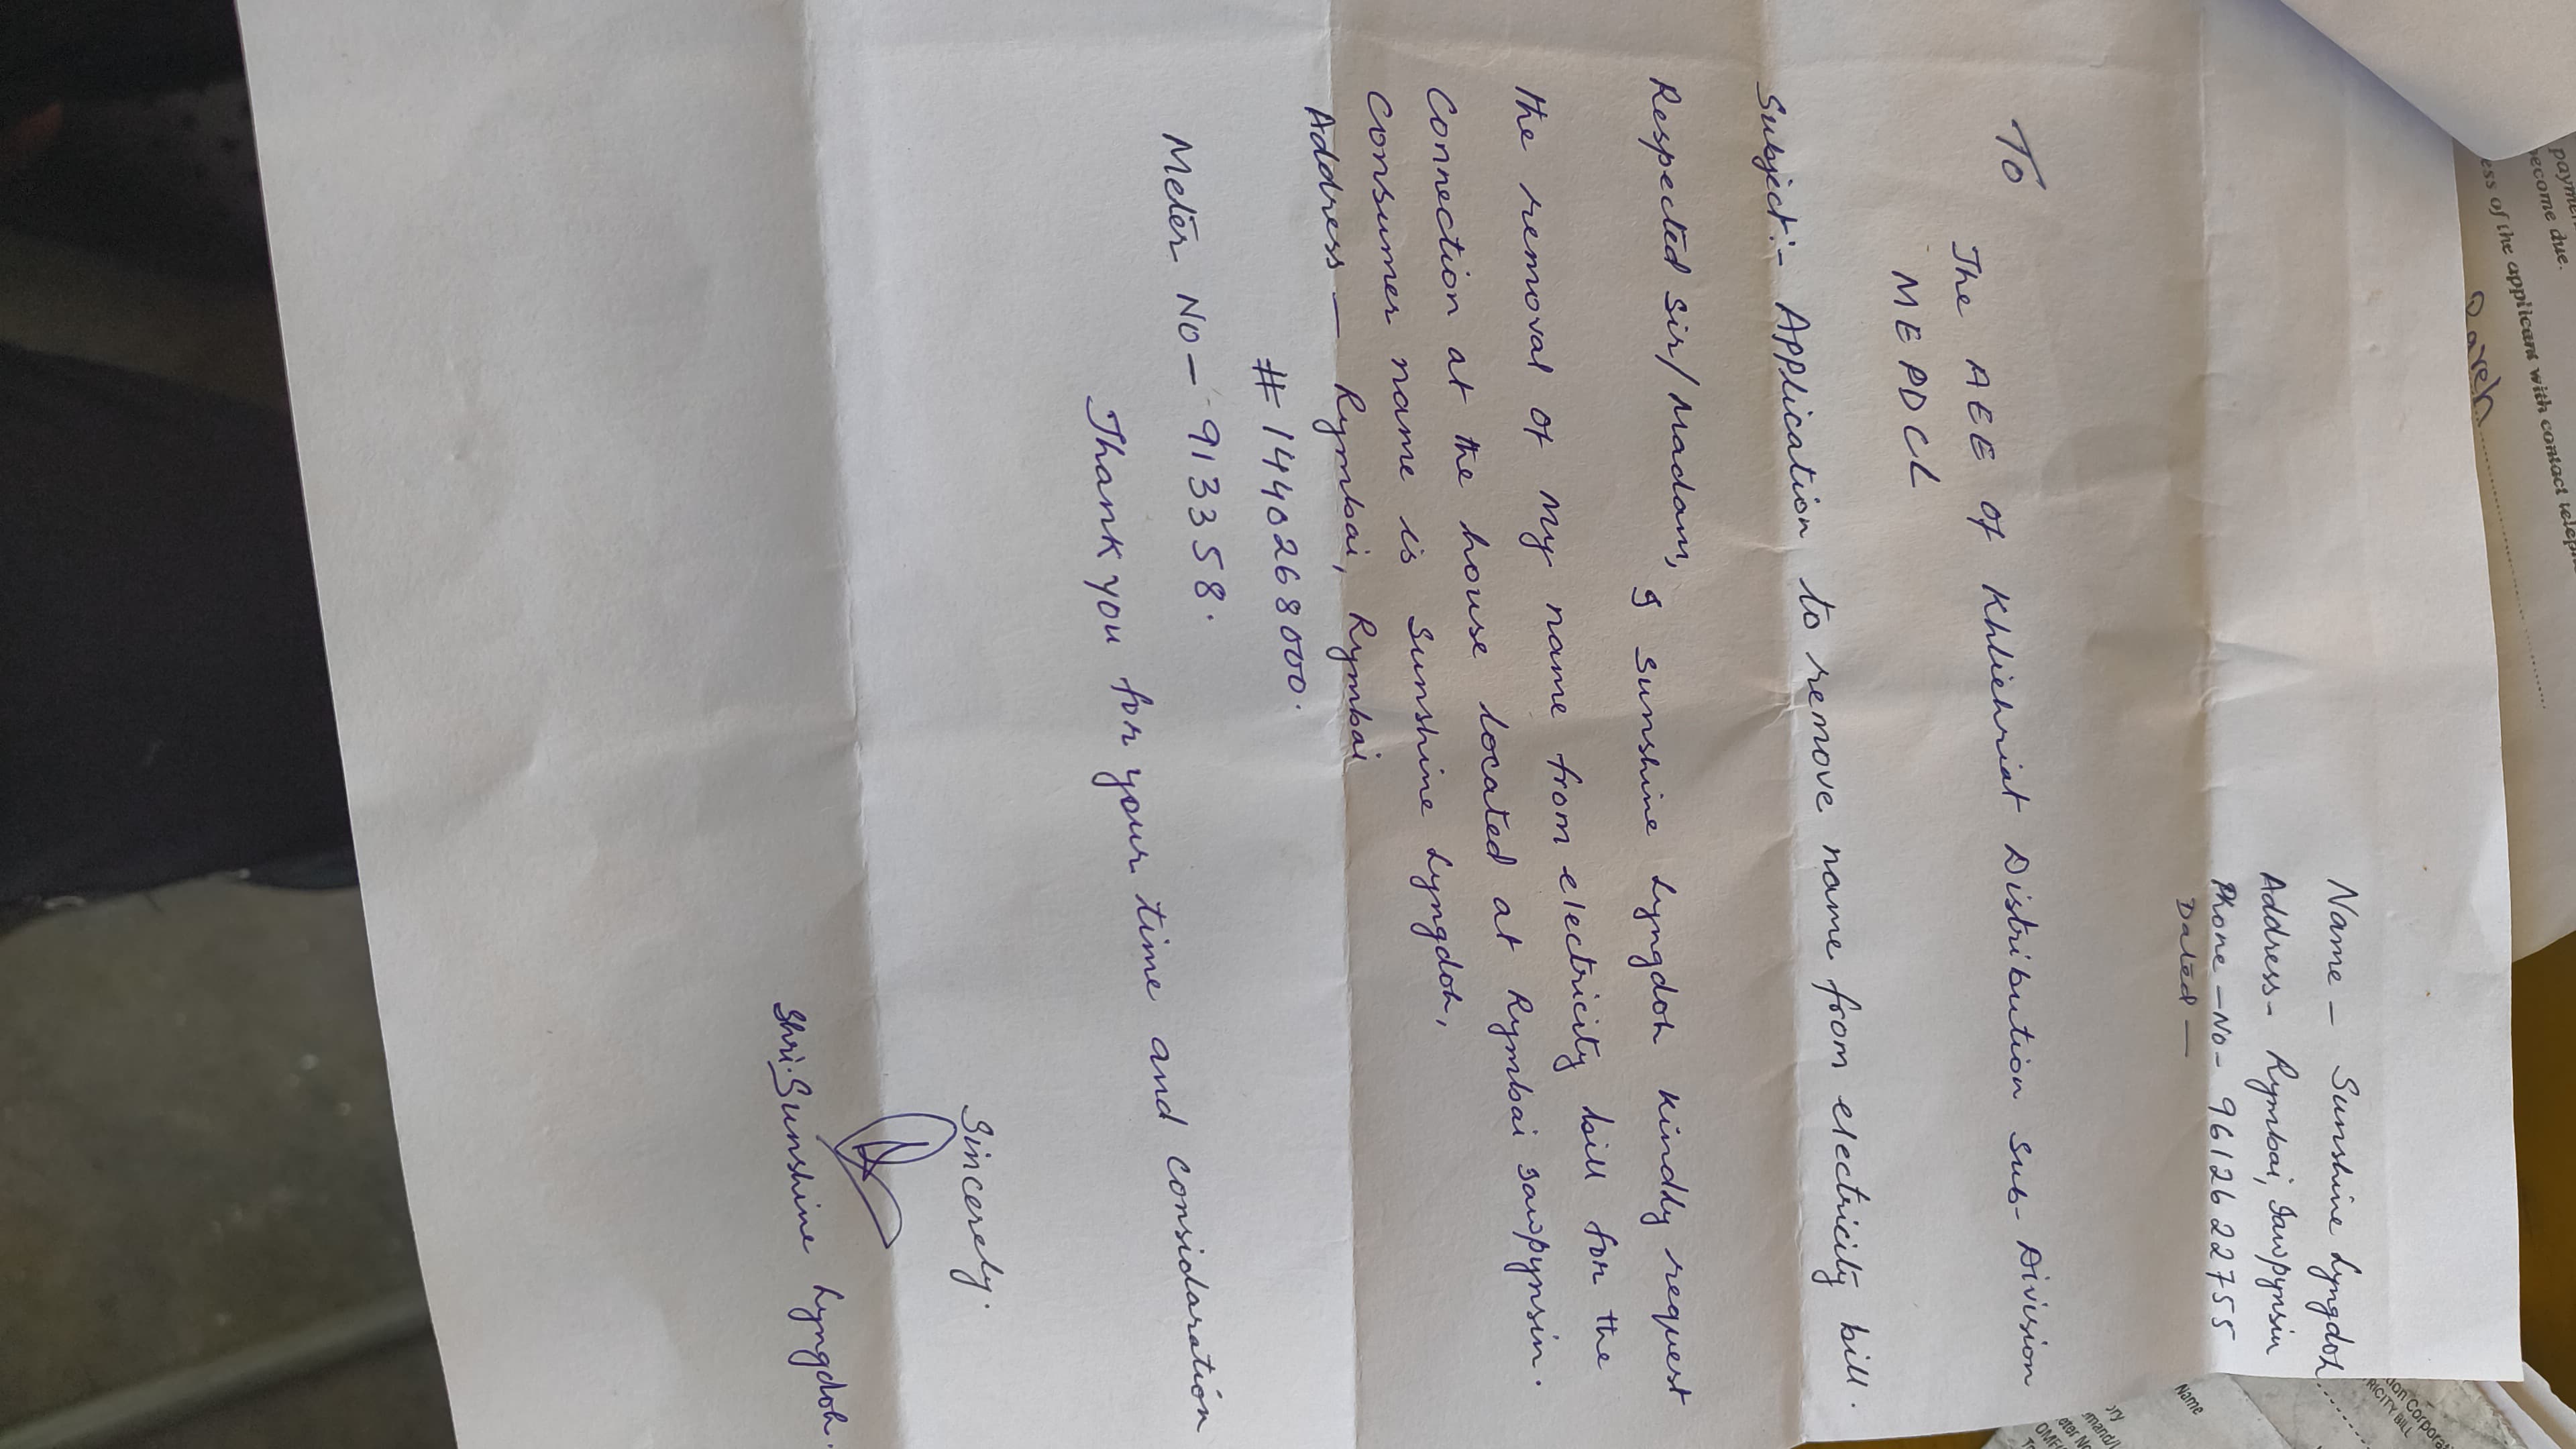 Name – Sunshine Lyngdoh
Address- Rymbai, Sawpynsin
Phone – No- 9612622755
Dated —
To
The AEE Of Khliehriat Distribution Sub-Division
MEPDCL
Subject:- Application to remove name from electricity bill.
Respected Sir/Madam, I Sunshine Lyngdoh kindly request
the removal of my name from electricity bill for the
Connection at the house located at Rymbai Sawpynsin.
Consumer name is Sunshine Lyngdoh,
Address — Rymbai, Rymbai
# 14402680000.
Meter No – 913358.
Thank you for your time and considaration
Sincerely.
Shri. Sunshine Lyngdoh.
payme
ecome due.
ess of the applicant with contact teleph
RICITY BILL
Name